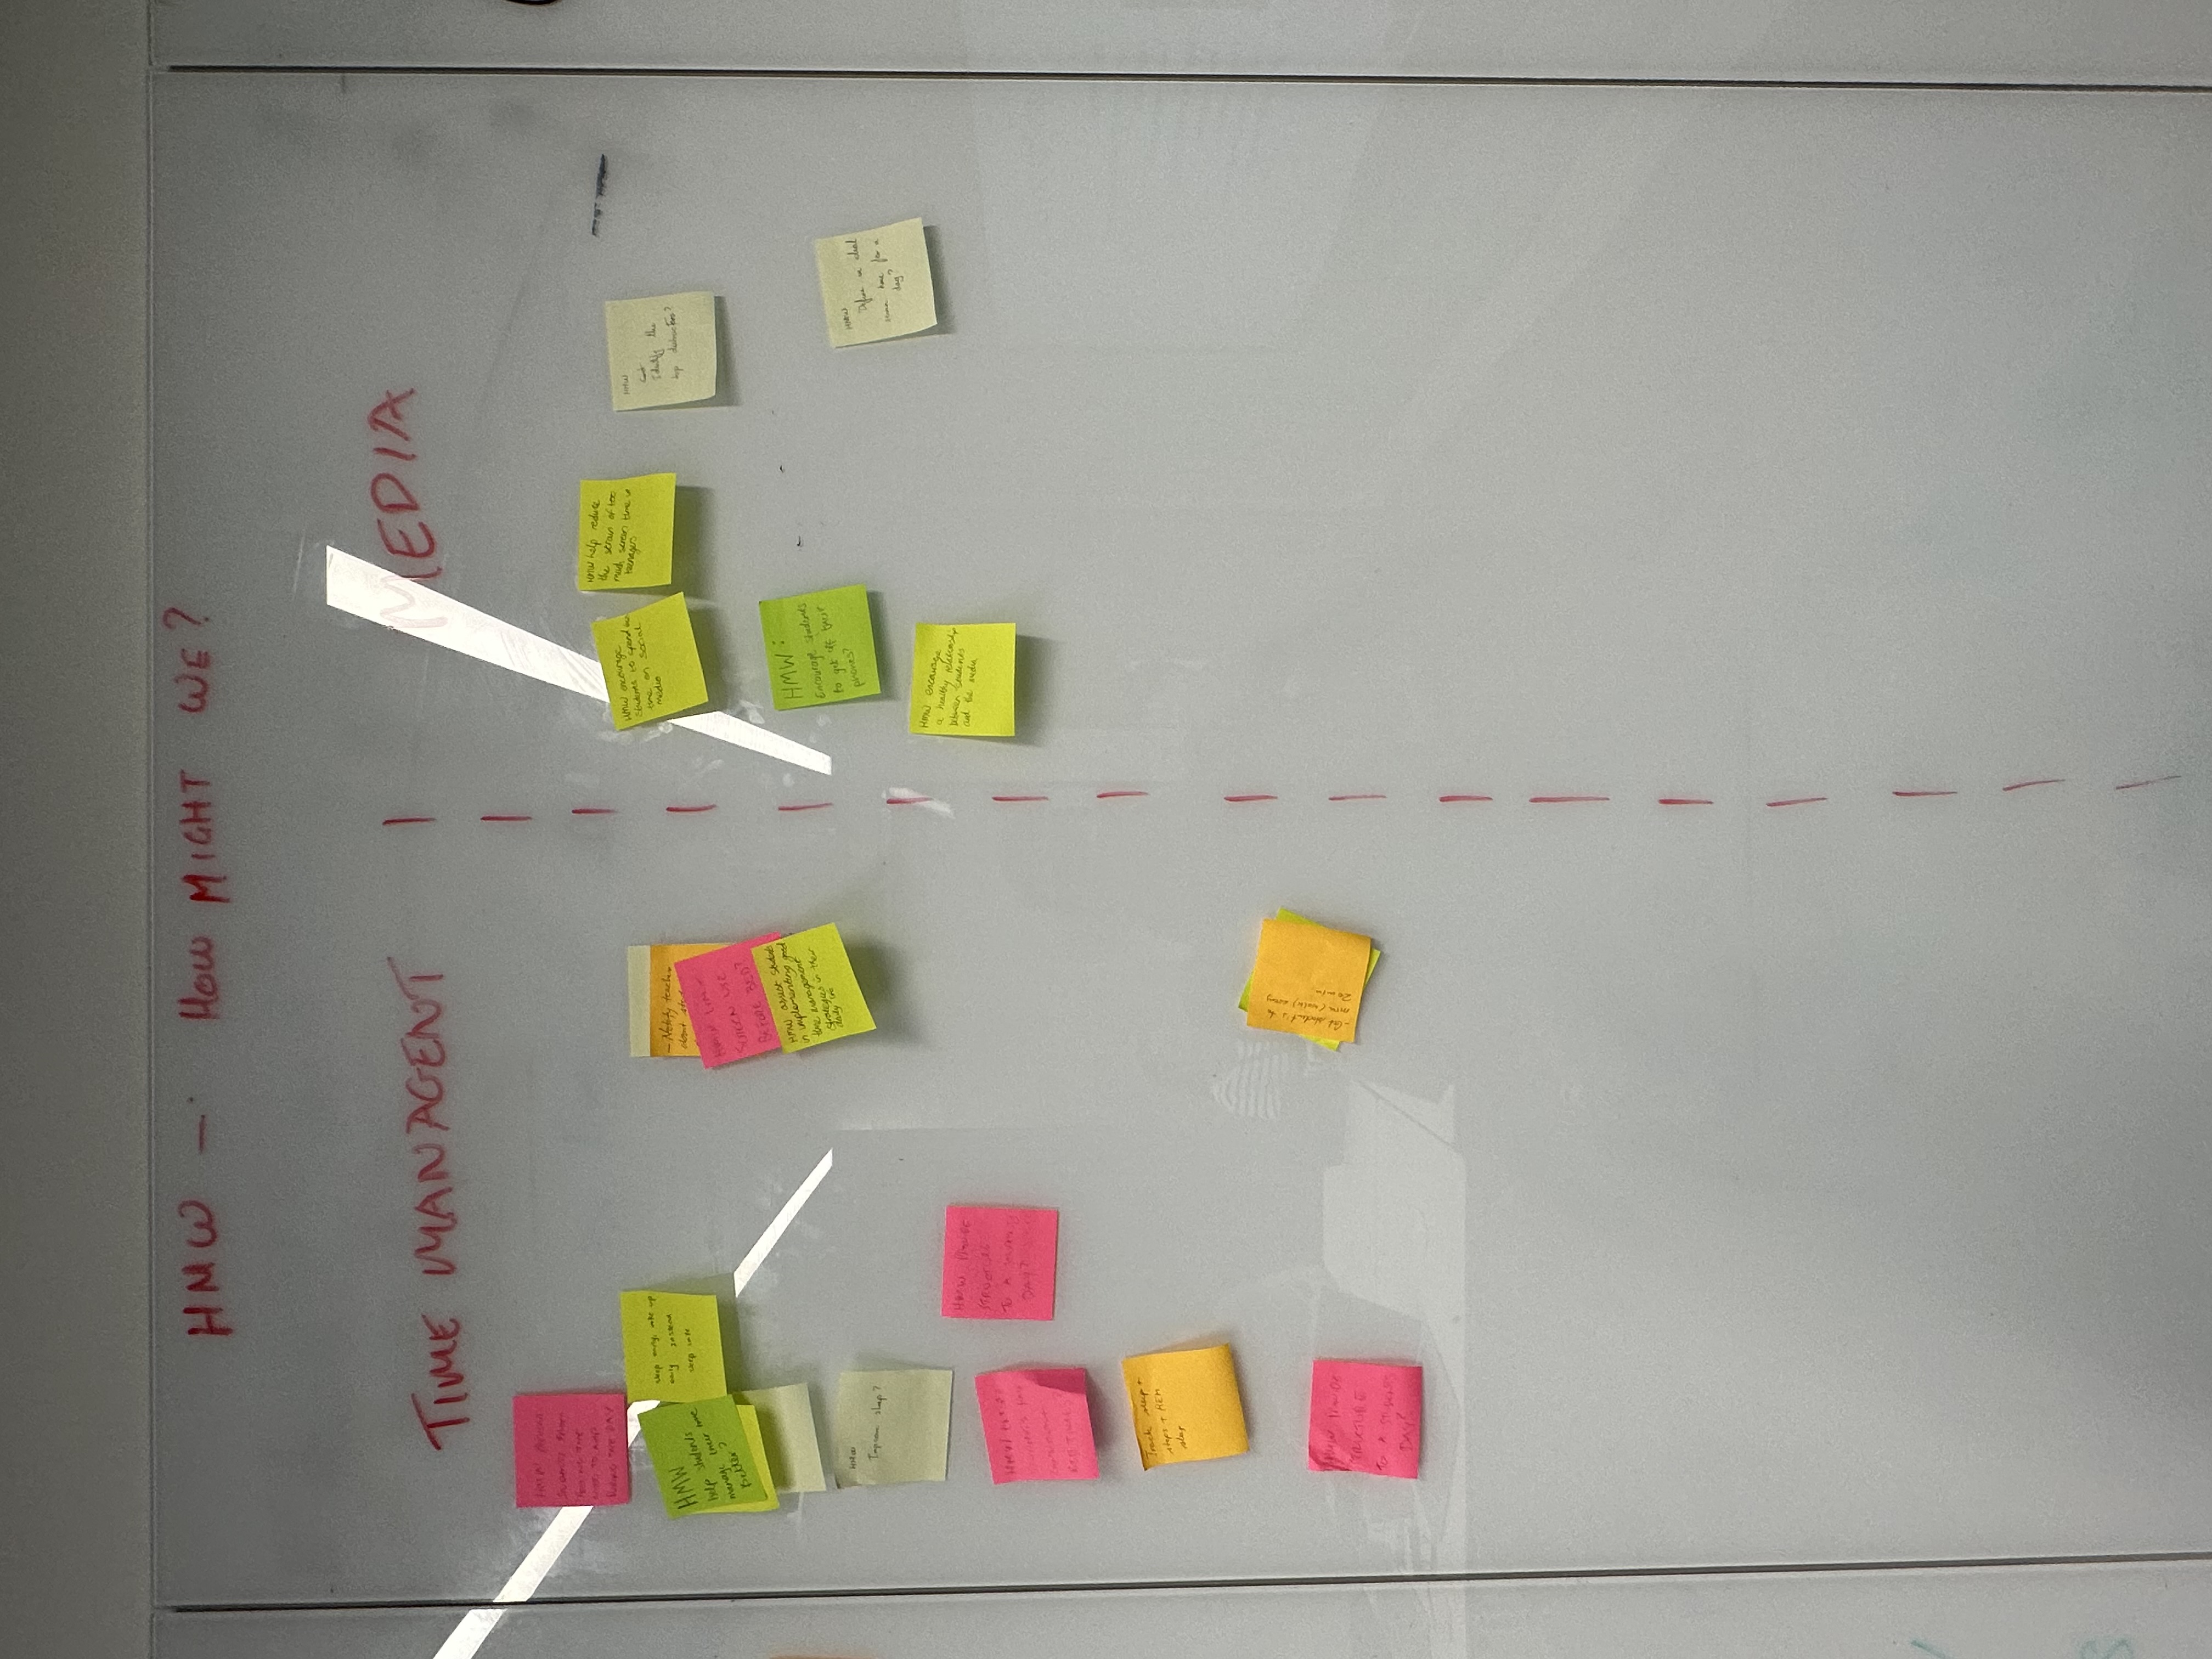 HMW – HOW MIGHT WE?
TIME MANAGENT
HMW
STUDENTS FROM
NEED TO NAP
DURING THE DAY
HMW
help students
manage their time
Better?
sleep early, wake up
early instead
sleep late
HMW
Improve sleep?
HMW
STRUCTURE
TO A
DAY?
HMW
BED TIMES?
Track sleep +
steps + REM
sleep
HMW
STRUCTURE
TO A STUDENTS
DAY?
- Notify teacher
about
HMW LIMIT
SCREEN USE
BEFORE BED?
HMW assist students
in implementing good
time management
strategies in their
daily
- Get student's to
move (walk) every
20 min
MEDIA
HMW encourage
students to spend
time on social
media
HMW help reduce
the strain of too
much screen time in
teenagers
HMW
Identify the
top distractions?
HMW:
Encourage students
to get off their
phones?
HMW
Define an ideal
screen time for a
day?
HMW encourage
a healthy relationship
between students
and the media